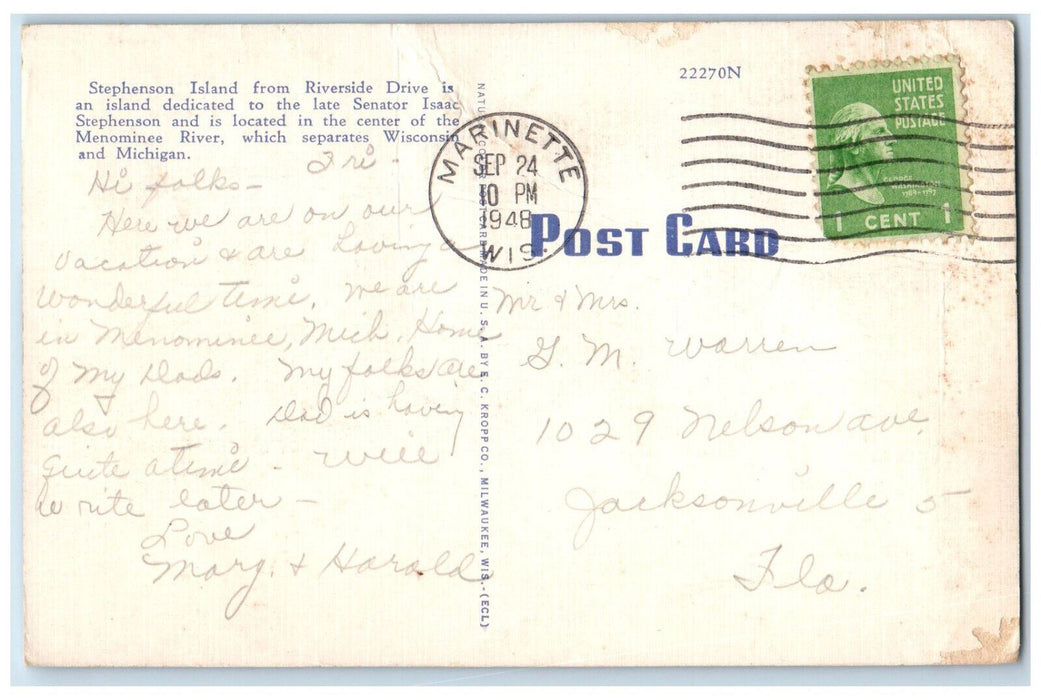 Stephenson Island from Riverside Drive is
an island dedicated to the late Senator Isaac
Stephenson and is located in the center of the
Menominee River, which separates Wisconsin
and Michigan.
Fri -
Hi folks -
Here we are on our
vacation & are having a
wonderful time. We are
in Menominee, Mich. Home
of my Dads. My folks are
also here. Dad is having
quite a time - will
write later -
Love
Mary. & Harold
NATURAL COLOR POST CARD MADE IN U. S. A. BY E. C. KROPP CO., MILWAUKEE, WIS.-(ECL)
22270N
MARINETTE
SEP 24
10 PM
1948
WIS
POST CARD
UNITED
STATES
POSTAGE
GEORGE
WASHINGTON
1789-1797
1 CENT 1
Mr & Mrs.
G. M. Warren
1029 Nelson ave.
Jacksonville 5
Fla.